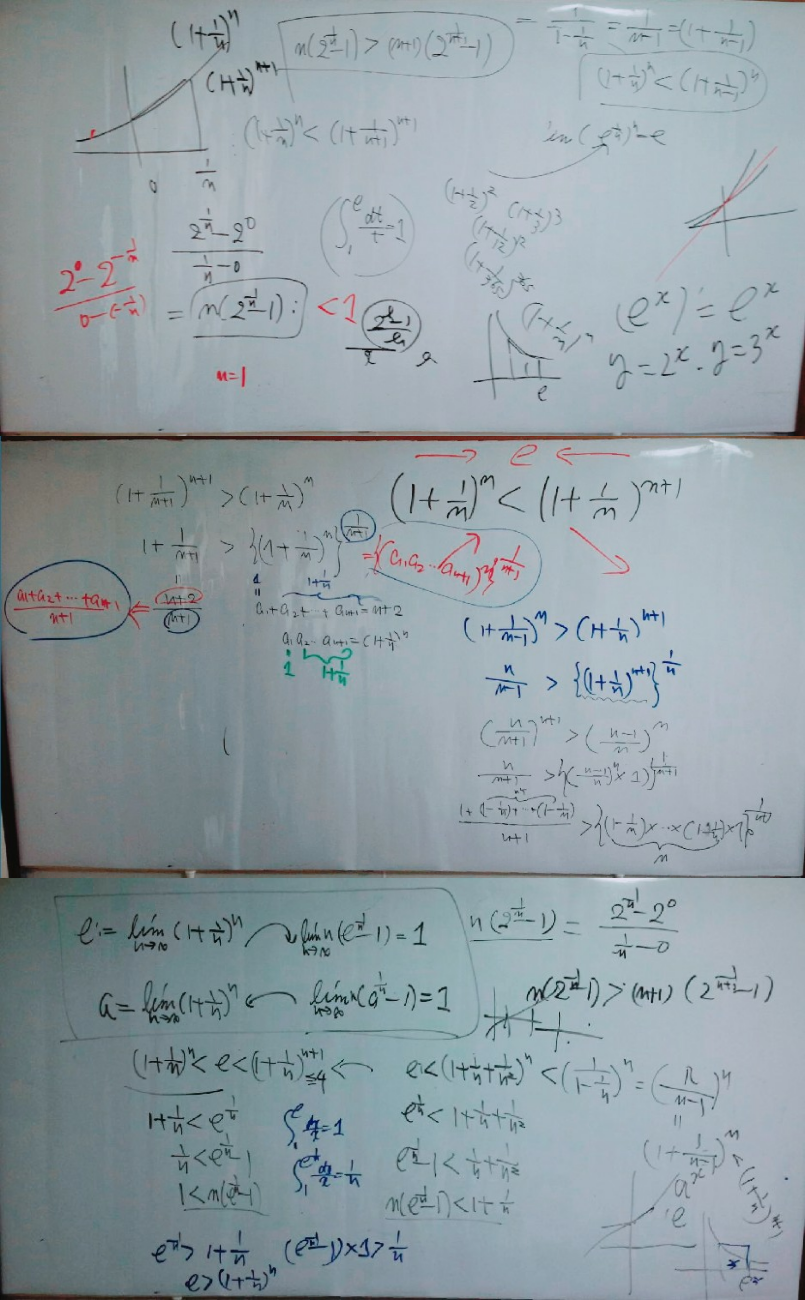 (1+1/n)^n
n(2^{1/n}-1) > (n+1)(2^{1/(n+1)}-1)
= 1/(1-1/n) = 1/(n-1) = (1+1/(n-1))
(1+1/n)^{n+1}
(1+1/n)^n < (1+1/(n-1))^n
(1+1/n)^n < (1+1/(n+1))^{n+1}
0
1/n
(2^{1/n}-2^0)/(1/n-0)
∫_1^e dt/t = 1
(1+1/2)^2 (1+1/3)^3
(1+1/12)^12
(1+1/365)^365
(2^0-2^{-1/n})/(0-(-1/n))
= n(2^{1/n}-1) : < 1
n=1
e
(e^x)' = e^x
y=2^x . y=3^x
→ e ←
(1+1/(n+1))^{n+1} > (1+1/n)^n
(1+1/n)^n < (1+1/n)^{n+1}
1+1/(n+1) > {(1+1/n)^n}^{1/(n+1)} = {(a1a2…an+1)}^{1/(n+1)}
(a1+a2+…+an+1)/(n+1) ⇐ (n+2)/(n+1)
1 1+1/n
a1+a2+…+an+1=n+2
a1a2…an+1=(1+1/n)^n
1 1+1/n
(1+1/(n-1))^n > (1+1/n)^{n+1}
n/(n-1) > {(1+1/n)^{n+1}}^{1/n}
(n/(n+1))^{n+1} > ((n-1)/n)^n
n/(n+1) > {((n-1)/n)^n×1}^{1/(n+1)}
(1+(1-1/n)+…+(1-1/n))/(n+1) > {(1-1/n)×…×(1-1/n)×1}^{1/(n+1)}
n
e := lim_{n→∞}(1+1/n)^n lim_{n→∞} n(e^{1/n}-1)=1
n(2^{1/n}-1) = (2^{1/n}-2^0)/(1/n-0)
a = lim_{n→∞}(1+1/n)^n ← lim_{n→∞} n(a^{1/n}-1)=1
n(2^{1/n}-1) > (n+1)(2^{1/(n+1)}-1)
(1+1/n)^n < e < (1+1/n)^{n+1} ≤4 ←
e < (1+1/n+1/n²)^n < (1/(1-1/n))^n = (n/(n-1))^n
1+1/n < e^{1/n}
∫_1^e dx/x = 1
e^{1/n} < 1+1/n+1/n²
=
(1+1/(n-1))^n
1/n < e^{1/n}-1
∫_1^{e^{1/n}} dx/x = 1/n
e^{1/n}-1 < 1/n+1/n²
1 < n(e^{1/n}-1)
n(e^{1/n}-1) < 1+1/n
a^x
e
e^{1/n} > 1+1/n (e^{1/n}-1)×1 > 1/n
e > (1+1/n)^n